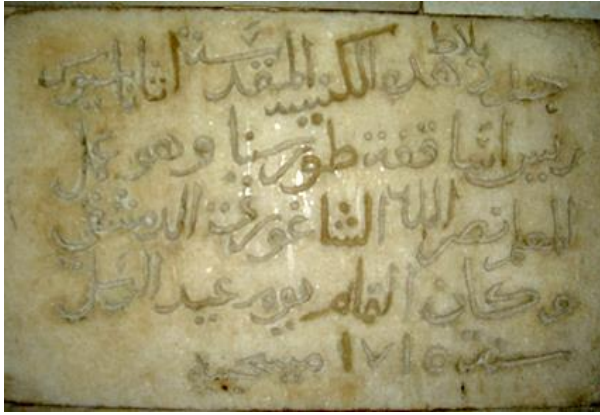 جدد بلاط هذه الكنيسة المقدسة اثاناسيوس
رييس اساقفة طور سينا وهو عمل
المعلم نصر الله الشاغوري الدمشقي
وكان التمام يوم عيد الرسل
سنة ١٧١٥ مسيحية